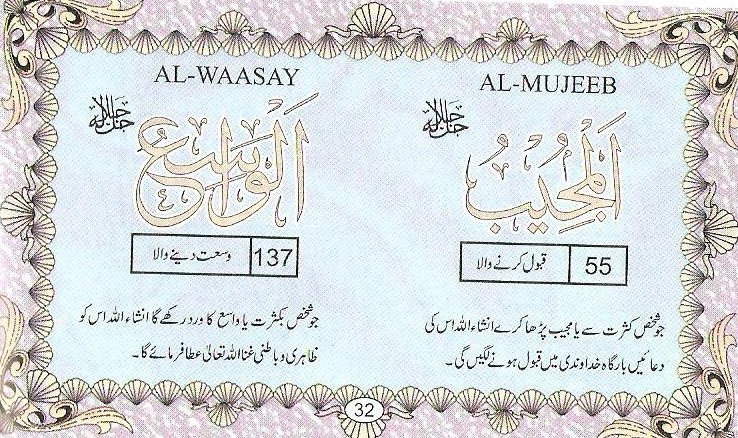 AL-MUJEEB
جل جلالہ
اَلْمُجِيْبُ
55 قبول کرنے والا
جو شخص کثرت سے یا مجیب پڑھا کرے انشاء اللہ اس کی
دعائیں بارگاہ خداوندی میں قبول ہونے لگیں گی۔
AL-WAASAY
جل جلالہ
اَلْوَاسِعُ
137 وسعت دینے والا
جو شخص بکثرت یا واسع کا ورد رکھے گا انشاء اللہ اس کو
ظاہری و باطنی غنا اللہ تعالیٰ عطا فرمائے گا۔
32